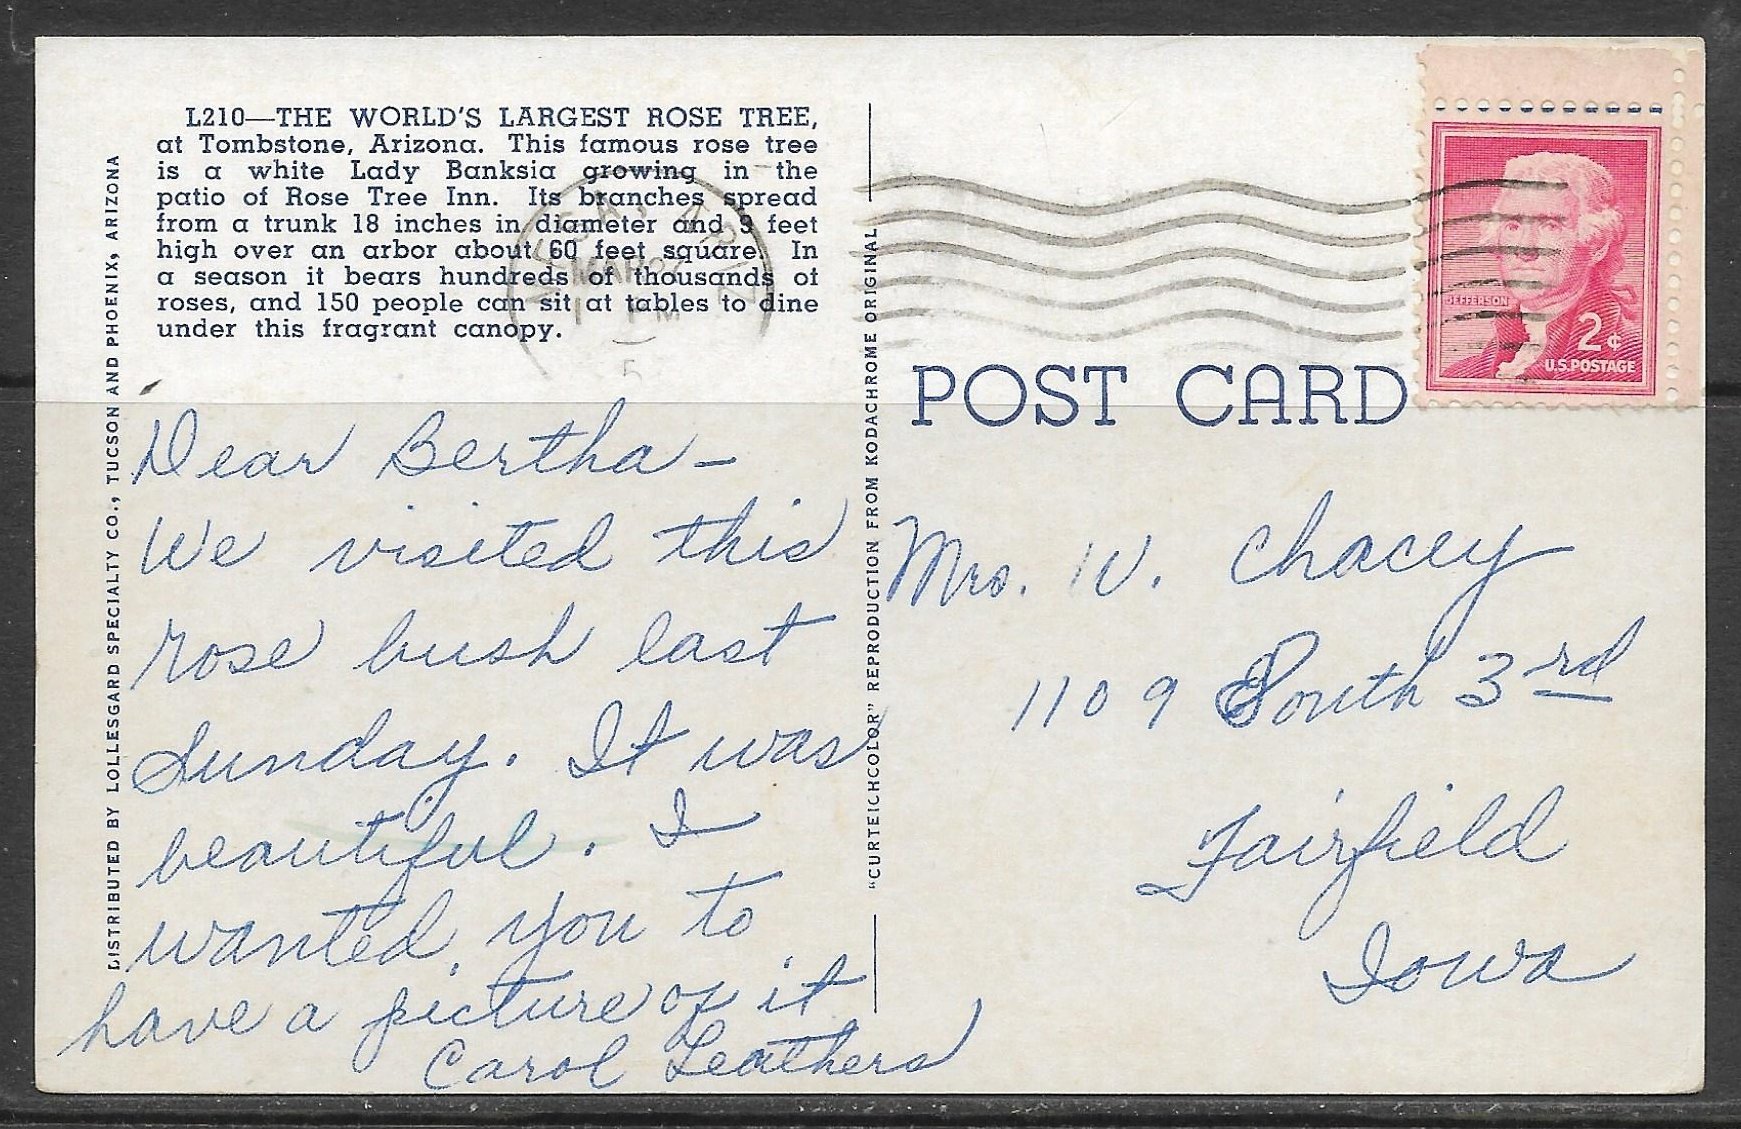 L210—THE WORLD'S LARGEST ROSE TREE,
at Tombstone, Arizona. This famous rose tree
is a white Lady Banksia growing in the
patio of Rose Tree Inn. Its branches spread
from a trunk 18 inches in diameter and 9 feet
high over an arbor about 60 feet square. In
a season it bears hundreds of thousands of
roses, and 150 people can sit at tables to dine
under this fragrant canopy.
DISTRIBUTED BY LOLLESGARD SPECIALTY CO., TUCSON AND PHOENIX, ARIZONA
Dear Bertha —
We visited this
rose bush last
Sunday. It was
beautiful. I
wanted you to
have a picture of it
Carol Leathers
"CURTEICHCOLOR" REPRODUCTION FROM KODACHROME ORIGINAL
MAR
PM
JEFFERSON
2¢
U.S. POSTAGE
POST CARD
Mrs. W. Chacey
1109 South 3rd
Fairfield
Iowa